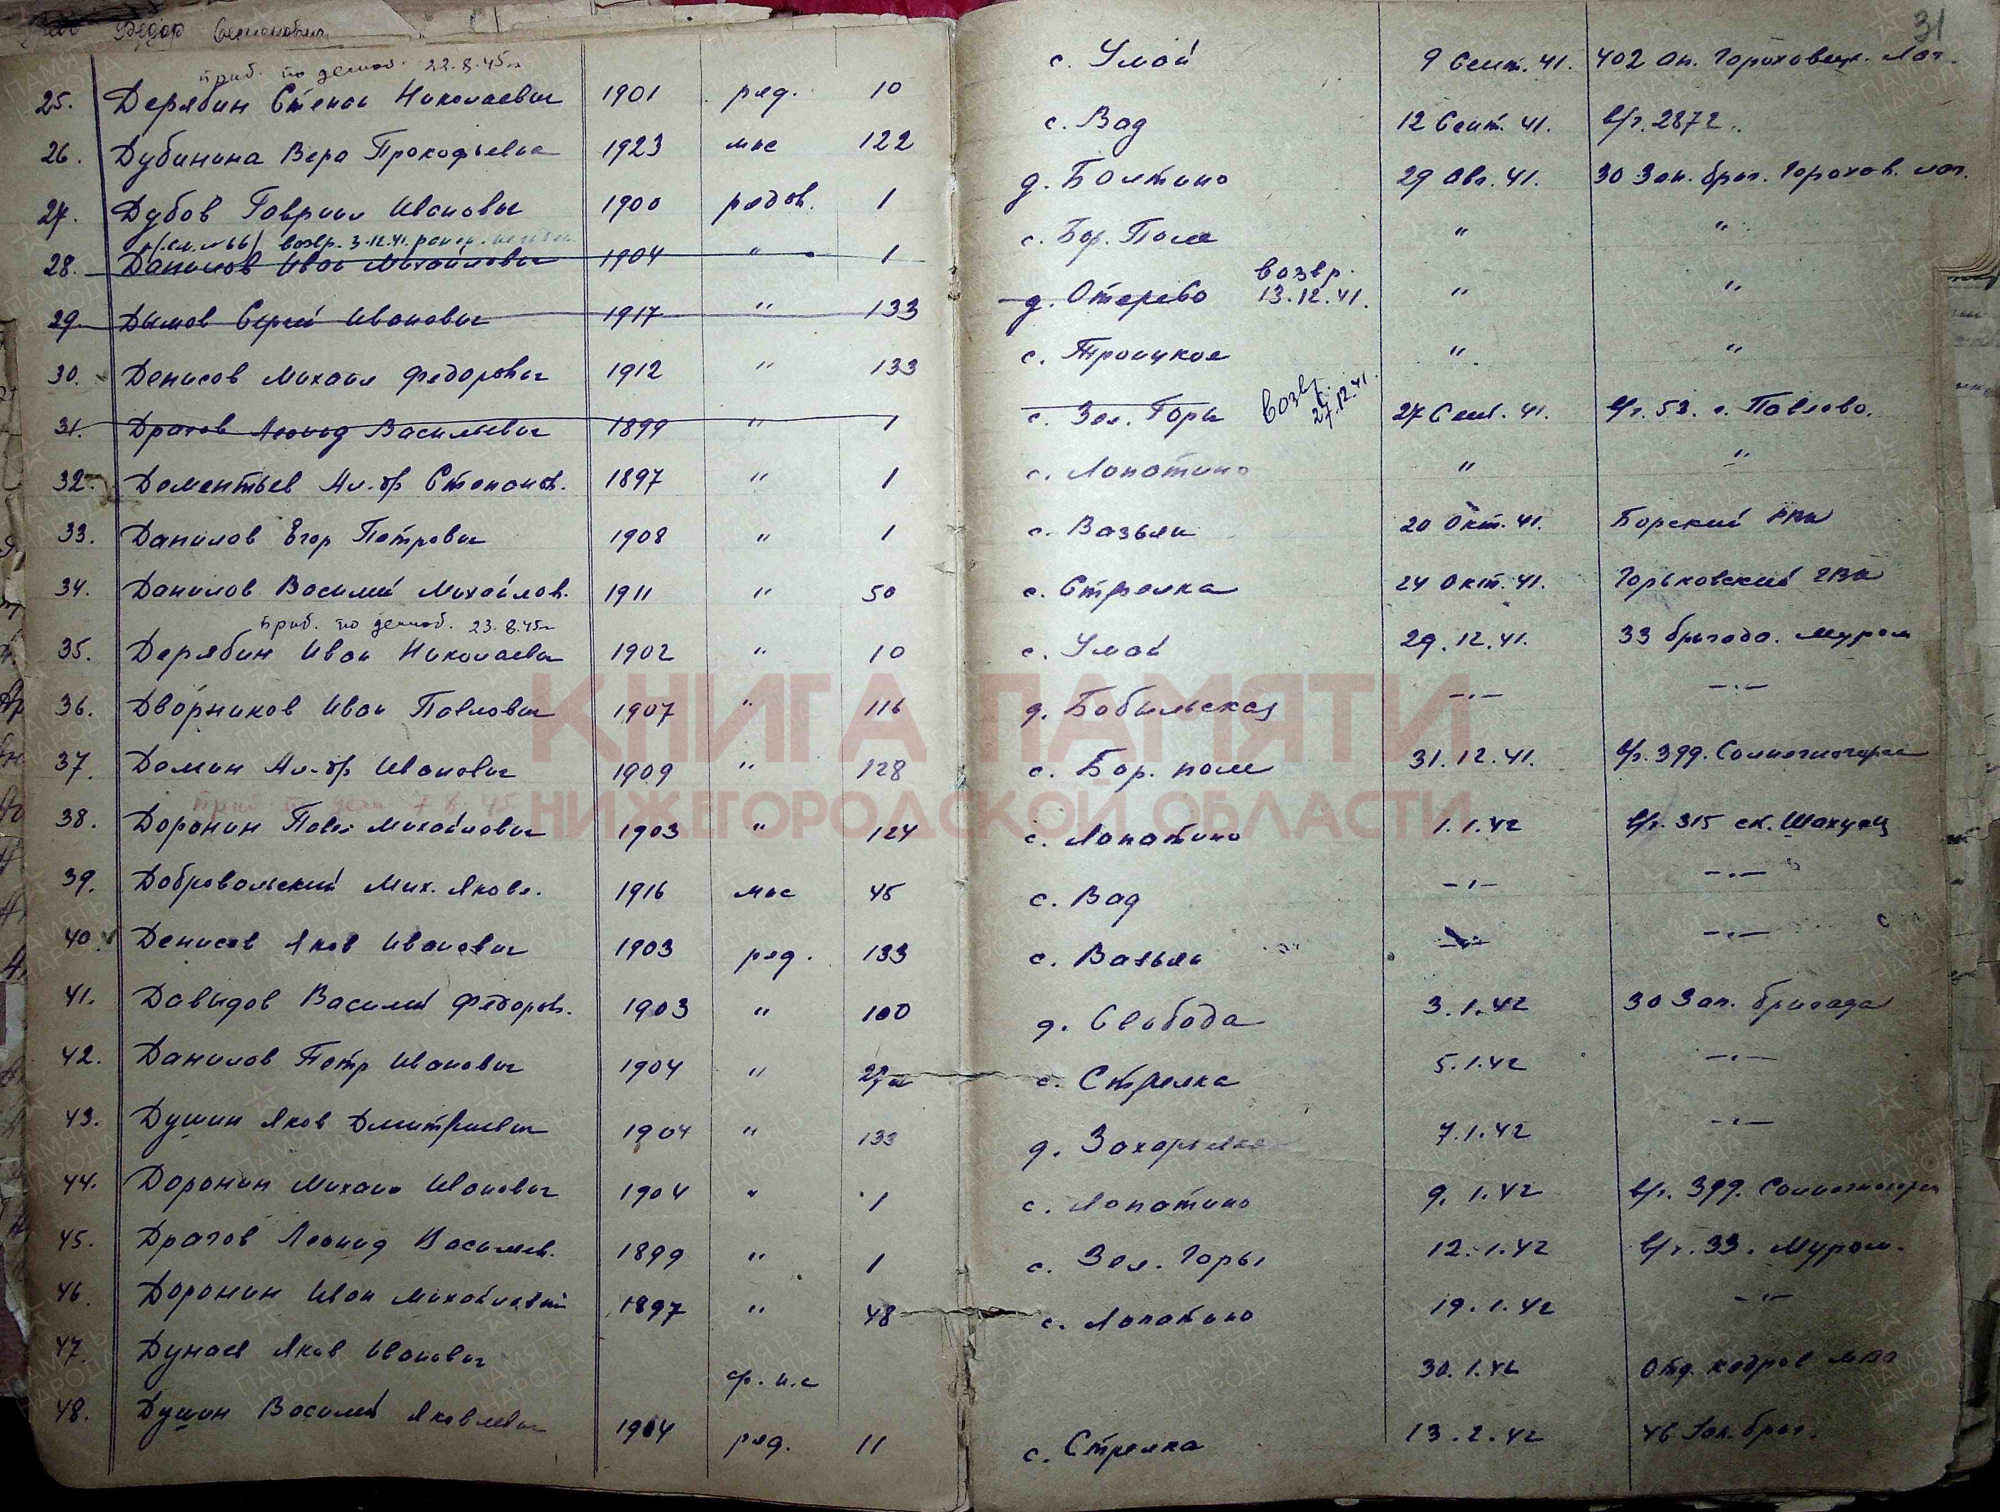 Федор Семенович
31
приб. по демоб. 22.8.45г
25. Дерябин Степан Николаевич 1901 ряд. 10 с. Умай 9 Сент. 41. 402 ап. Гороховецк. Лаг.
26. Дубинина Вера Прокофьевна 1923 мнс 122 с. Вад 12 Сент. 41. в/ч. 2872.
27. Дубов Гавриил Иванович 1900 рядов. 1 д. Болтино 29 Авг. 41. 30 Зап. бриг. Горохов. лаг.
/см. № 66/ возвр. 3.12.41.
28. Данилов Иван Михайлович 1904 " 1 с. Бор. Поле " "
29. Дымов Сергей Иванович 1917 " 133 д. Отерево возвр. 13.12.41. " "
30. Денисов Михаил Федорович 1912 " 133 с. Троицкое " "
31. Драгов Леонид Васильевич 1899 " 1 с. Зел. Горы возвр. 27.12.41. 27 Сент. 41. в/ч. 53. г. Павлово.
32. Дементьев Ал-др Степанов. 1897 " 1 с. Лопатино " "
33. Данилов Егор Петрович 1908 " 1 с. Вазьян 20 Окт. 41. Борский РВК
34. Данилов Василий Михайлов. 1911 " 50 с. Стрелка 24 Окт. 41. Горьковский ГВК
приб. по демоб. 23.8.45г
35. Дерябин Иван Николаевич 1902 " 10 с. Умай 29.12.41. 33 бригада. Муром
36. Дворников Иван Павлович 1907 " 116 д. Бобыльская -"- -"-
37. Демин Ал-др Иванович 1909 " 128 с. Бор. поле 31.12.41. в/ч. 399. Солнечногорск
Приб по дем 45
38. Доронин Павел Михайлович 1903 " 124 с. Лопатино 1.1.42 в/ч. 315 ст. Шахунья
39. Добровольский Мих. Яковл. 1916 мнс 45 с. Вад -"- -"-
40. Денисов Яков Иванович 1903 ряд. 133 с. Вазьян -"- -"-
41. Давыдов Василий Федоров. 1903 " 100 д. Слобода 3.1.42 30 Зап. бригада
42. Данилов Петр Иванович 1904 " с. Стрелка 5.1.42 -"-
43. Душин Яков Дмитриевич 1904 " 133 д. Захарьевка 7.1.42 -"-
44. Доронин Михаил Иванович 1904 " 1 с. Лопатино 9.1.42 в/ч. 399. Солнечногорск
45. Драгов Леонид Васильев. 1899 " 1 с. Зел. Горы 12.1.42 в/ч. 33. Муром.
46. Доронин Иван Михайлович 1897 " 48 с. Лопатино 19.1.42 -"-
47. Дунаев Яков Иванович 30.1.42 Отд. кадров МВО
48. Душин Василий Яковлевич 1904 ряд. 11 с. Стрелка 13.2.42 46 Зап. бриг.
КНИГА ПАМЯТИ
НИЖЕГОРОДСКОЙ ОБЛАСТИ